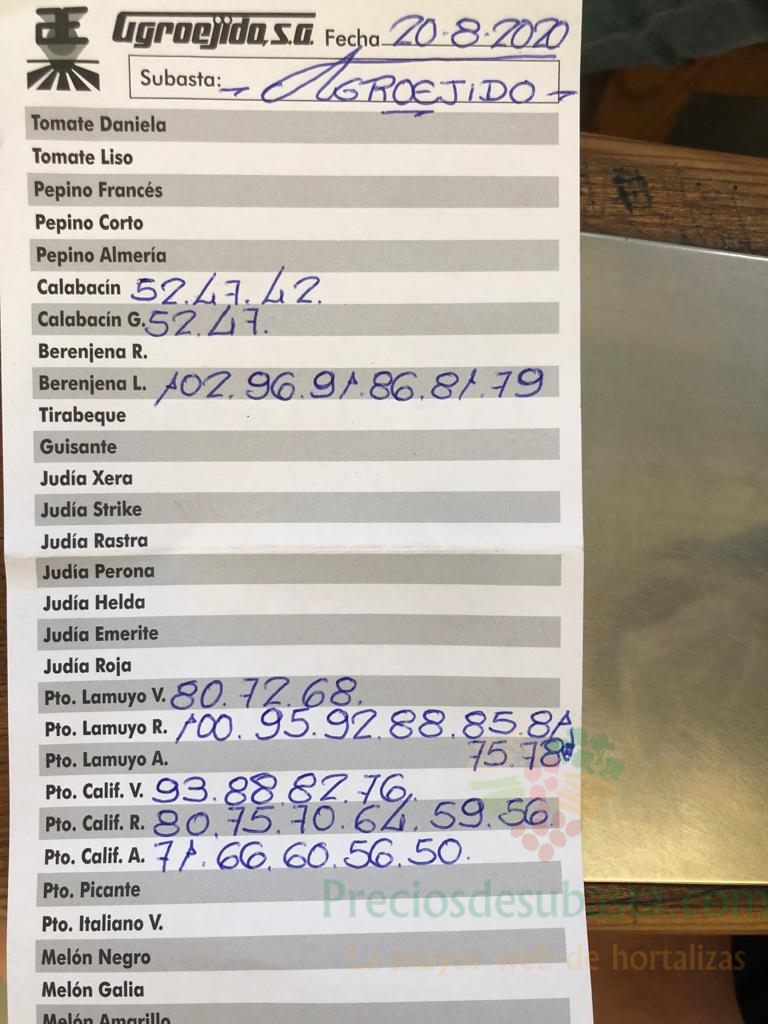 Agroejido, s.a. Fecha 20-8-2020
Subasta: - AGROEJIDO -
Tomate Daniela
Tomate Liso
Pepino Francés
Pepino Corto
Pepino Almería
Calabacín 52.47.42.
Calabacín G. 52.47.
Berenjena R.
Berenjena L. 102.96.91.86.81.79
Tirabeque
Guisante
Judía Xera
Judía Strike
Judía Rastra
Judía Perona
Judía Helda
Judía Emerite
Judía Roja
Pto. Lamuyo V. 80.72.68.
Pto. Lamuyo R. 100.95.92.88.85.81
75.78
Pto. Lamuyo A.
Pto. Calif. V. 93.88.82.76.
Pto. Calif. R. 80.75.70.64.59.56.
Pto. Calif. A. 71.66.60.56.50.
Pto. Picante
Preciosdesubasta.com
Pto. Italiano V.
Melón Negro
La mayor web de hortalizas
Melón Galia
Melón Amarillo